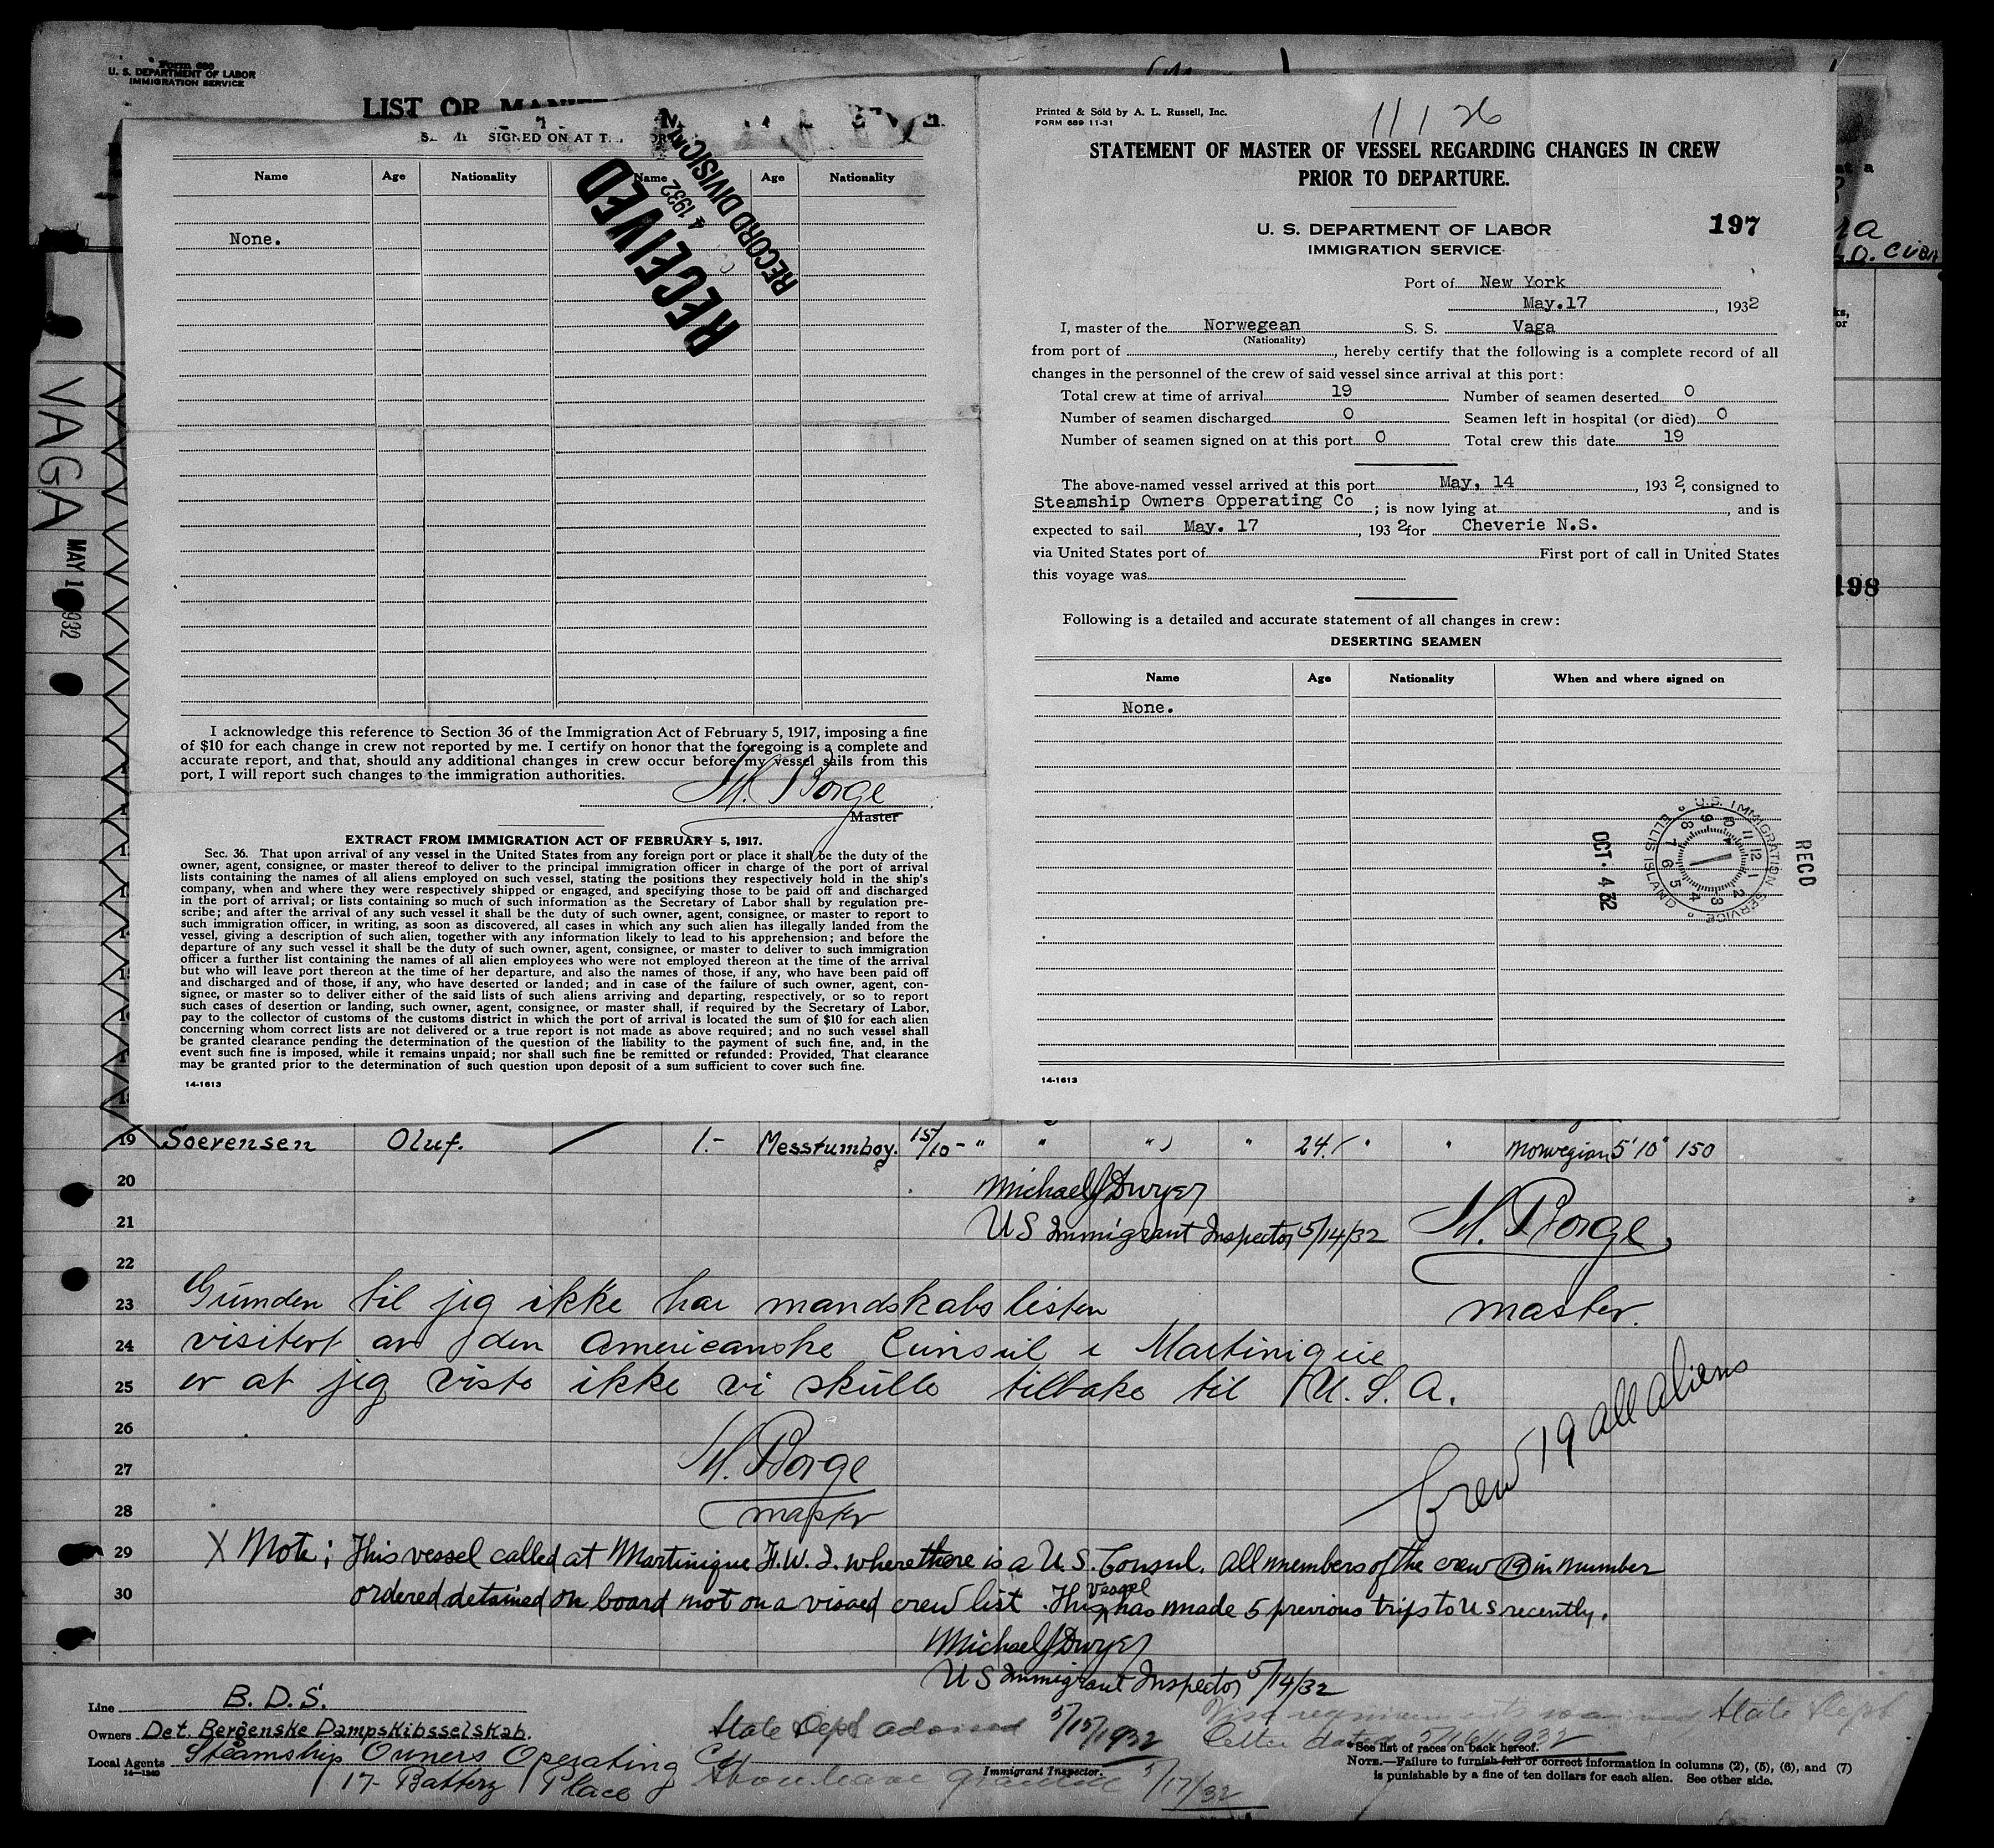 Form 680
U. S. DEPARTMENT OF LABOR
IMMIGRATION SERVICE
LIST OR
SIGNED ON AT
Name Age Nationality Name Age Nationality
None.
RECEIVED
4 1932
RECORD DIVISION
I acknowledge this reference to Section 36 of the Immigration Act of February 5, 1917, imposing a fine
of $10 for each change in crew not reported by me. I certify on honor that the foregoing is a complete and
accurate report, and that, should any additional changes in crew occur before my vessel sails from this
port, I will report such changes to the immigration authorities.
M. Borge
Master
EXTRACT FROM IMMIGRATION ACT OF FEBRUARY 5, 1917.
Sec. 36. That upon arrival of any vessel in the United States from any foreign port or place it shall be the duty of the
owner, agent, consignee, or master thereof to deliver to the principal immigration officer in charge of the port of arrival
lists containing the names of all aliens employed on such vessel, stating the positions they respectively hold in the ship's
company, when and where they were respectively shipped or engaged, and specifying those to be paid off and discharged
in the port of arrival; or lists containing so much of such information as the Secretary of Labor shall by regulation pre-
scribe; and after the arrival of any such vessel it shall be the duty of such owner, agent, consignee, or master to report to
such immigration officer, in writing, as soon as discovered, all cases in which any such alien has illegally landed from the
vessel, giving a description of such alien, together with any information likely to lead to his apprehension; and before the
departure of any such vessel it shall be the duty of such owner, agent, consignee, or master to deliver to such immigration
officer a further list containing the names of all alien employees who were not employed thereon at the time of the arrival
but who will leave port thereon at the time of her departure, and also the names of those, if any, who have been paid off
and discharged and of those, if any, who have deserted or landed; and in case of the failure of such owner, agent, con-
signee, or master so to deliver either of the said lists of such aliens arriving and departing, respectively, or so to report
such cases of desertion or landing, such owner, agent, consignee, or master shall, if required by the Secretary of Labor,
pay to the collector of customs of the customs district in which the port of arrival is located the sum of $10 for each alien
concerning whom correct lists are not delivered or a true report is not made as above required; and no such vessel shall
be granted clearance pending the determination of the question of the liability to the payment of such fine, and, in the
event such fine is imposed, while it remains unpaid; nor shall such fine be remitted or refunded: Provided, That clearance
may be granted prior to the determination of such question upon deposit of a sum sufficient to cover such fine.
14-1613
Printed & Sold by A. L. Russell, Inc.
FORM 689 11-31
11126
STATEMENT OF MASTER OF VESSEL REGARDING CHANGES IN CREW
PRIOR TO DEPARTURE.
U. S. DEPARTMENT OF LABOR
IMMIGRATION SERVICE
197
Port of New York
May.17, 1932
I, master of the Norwegean S. S. Vaga
(Nationality)
from port of , hereby certify that the following is a complete record of all
changes in the personnel of the crew of said vessel since arrival at this port:
Total crew at time of arrival 19 Number of seamen deserted 0
Number of seamen discharged 0 Seamen left in hospital (or died) 0
Number of seamen signed on at this port 0 Total crew this date 19
The above-named vessel arrived at this port May. 14, 1932, consigned to
Steamship Owners Opperating Co ; is now lying at , and is
expected to sail May. 17, 1932 for Cheverie N.S.
via United States port of First port of call in United States
this voyage was
Following is a detailed and accurate statement of all changes in crew:
DESERTING SEAMEN
Name Age Nationality When and where signed on
None.
U.S. IMMIGRATION SERVICE
ELLIS ISLAND
12 1 2 3 4 5 6 7 8 9 10 11
RECD
OCT. 4 32
14-1613
VAGA
MAY 1 1932
198
CUBA
19 Soerensen Oluf. 1.- Messrumboy. 15/10 - " " " " 24. " " Norwegian 5'10" 150
20
Michael J Dwyer
21
US Immigrant Inspector 5/14/32
M. Borge
master.
22
23 Grunden til jeg ikke har mandskabslisten
24 visitert av den Americanske Cunsul i Martinique
25 er at jeg viste ikke vi skulle tilbake til U. S. A.
26
27 M. Borge
28 master
Crew 19 all aliens
29 X Note; This vessel called at Martinique F.W.I. where there is a U.S. Consul. All members of the crew 19 in number
30 ordered detained on board not on a visaed crew list. This vessel has made 5 previous trips to US recently.
Michael J Dwyer
US Immigrant Inspector 5/14/32
Line B. D. S.
Owners Det. Bergenske Dampskibsselskab.
Local Agents Steamship Owners Operating Co.
14-1240
17- Battery Place
State Dept advised 5/15/1932
Immigrant Inspector.
Shore leave granted 5/17/32
Visa requirements State Dept
letter dated 5/16/1932
See list of races on back hereof.
NOTE.—Failure to furnish full or correct information in columns (2), (5), (6), and (7)
is punishable by a fine of ten dollars for each alien. See other side.